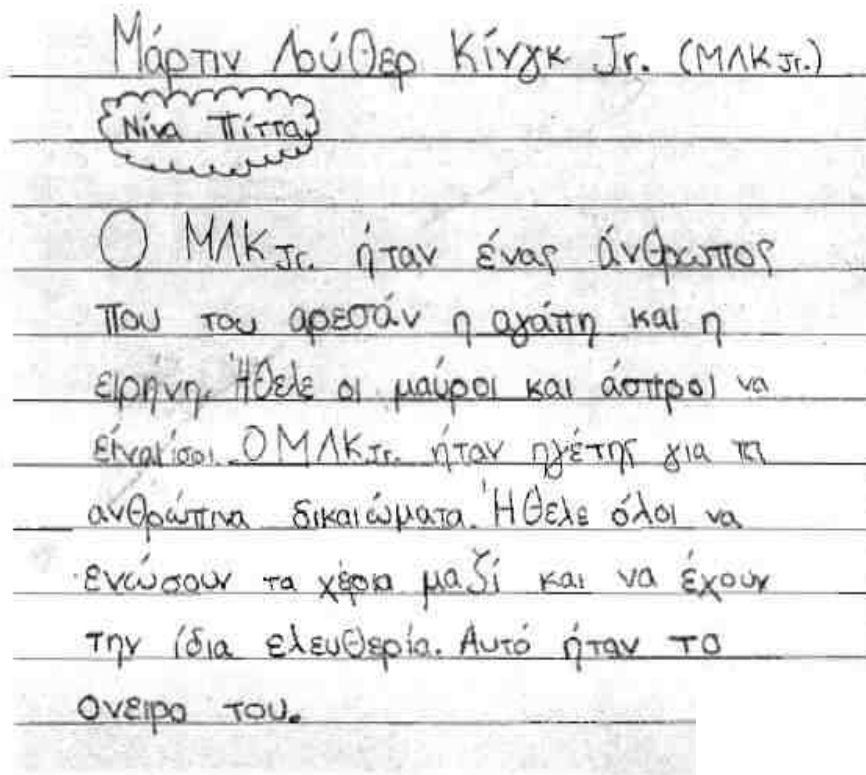 Μάρτιν Λούθερ Κίνγκ Jr. (ΜΛΚ Jr.)
Νίνα Πίττα
Ο ΜΛΚ Jr. ήταν ένας άνθρωπος
που του αρεσάν η αγάπη και η
ειρήνη. Ήθελε οι μαύροι και άσπροι να
είναι ίσοι. Ο ΜΛΚ Jr. ήταν ηγέτης για τα
ανθρώπινα δικαιώματα. Ήθελε όλοι να
ενώσουν τα χέρια μαζί και να έχουν
την ίδια ελευθερία. Αυτό ήταν το
ονειρο του.